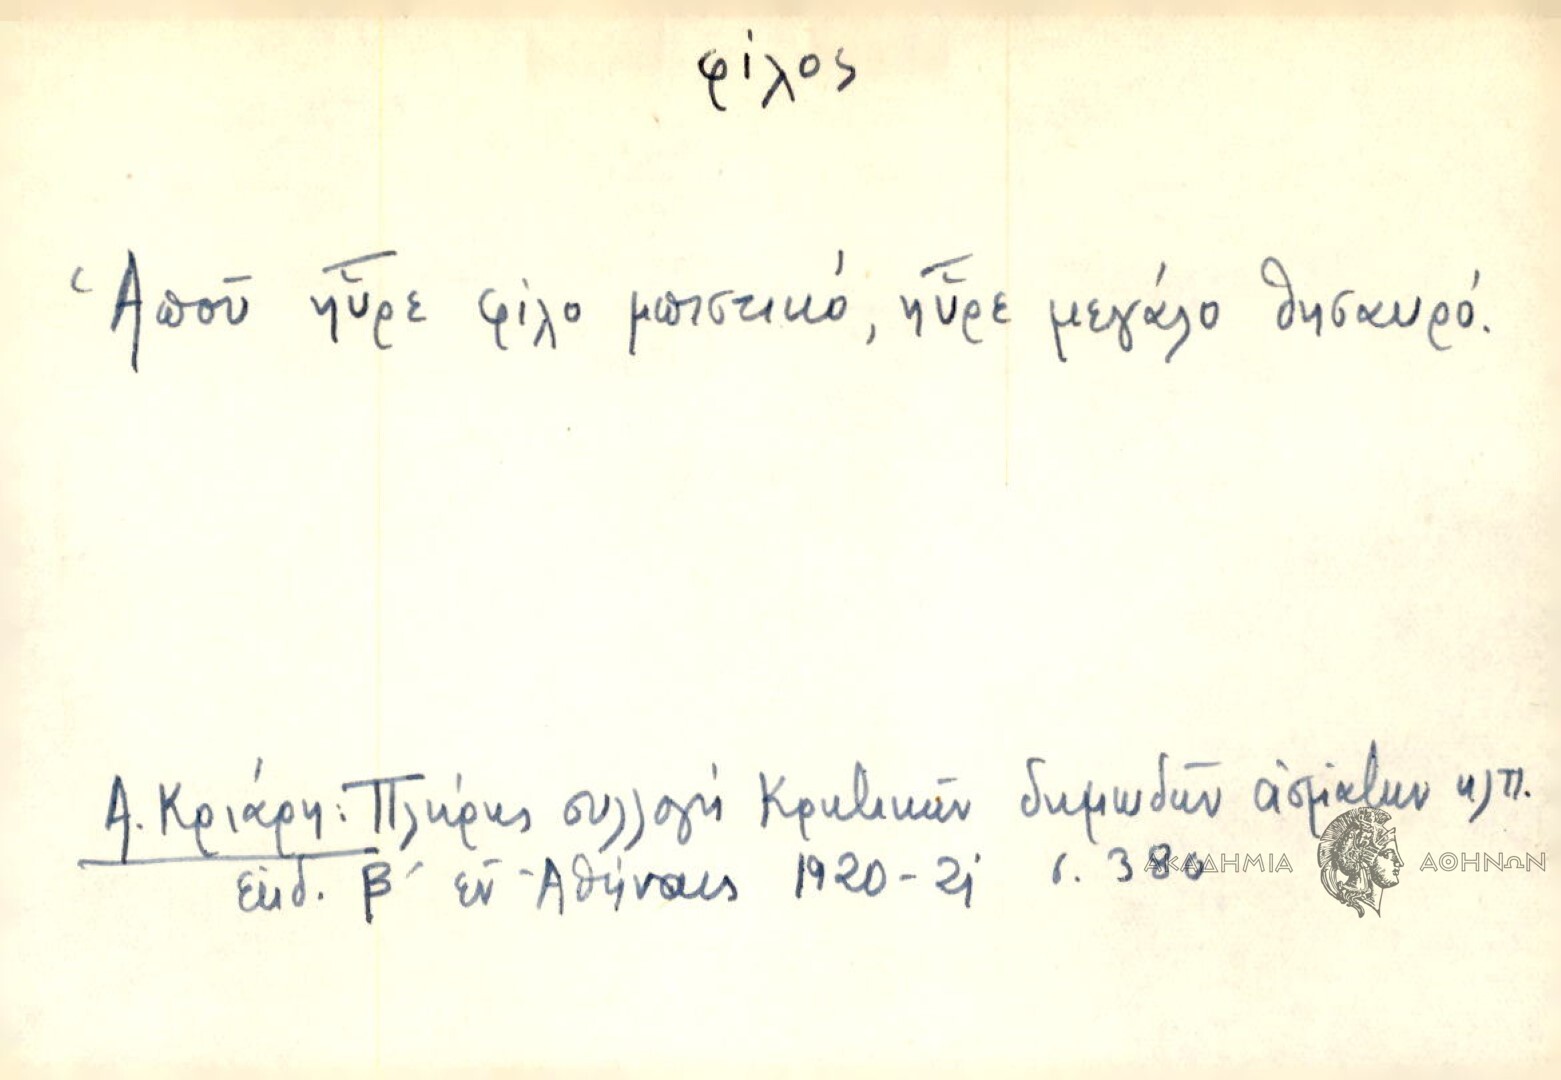 φίλος
Ἁποῦ ηὗρε φίλο μπιστικό, ηὗρε μεγάλο θησαυρό.
Α. Κριάρη: Πλήρης συλλογή Κρητικῶν δημωδῶν ἀσμάτων κλπ.
ἐκδ. β΄ ἐν Ἀθήναις 1920-21 σ. 380
ΑΚΑΔΗΜΙΑ ΑΘΗΝΩΝ